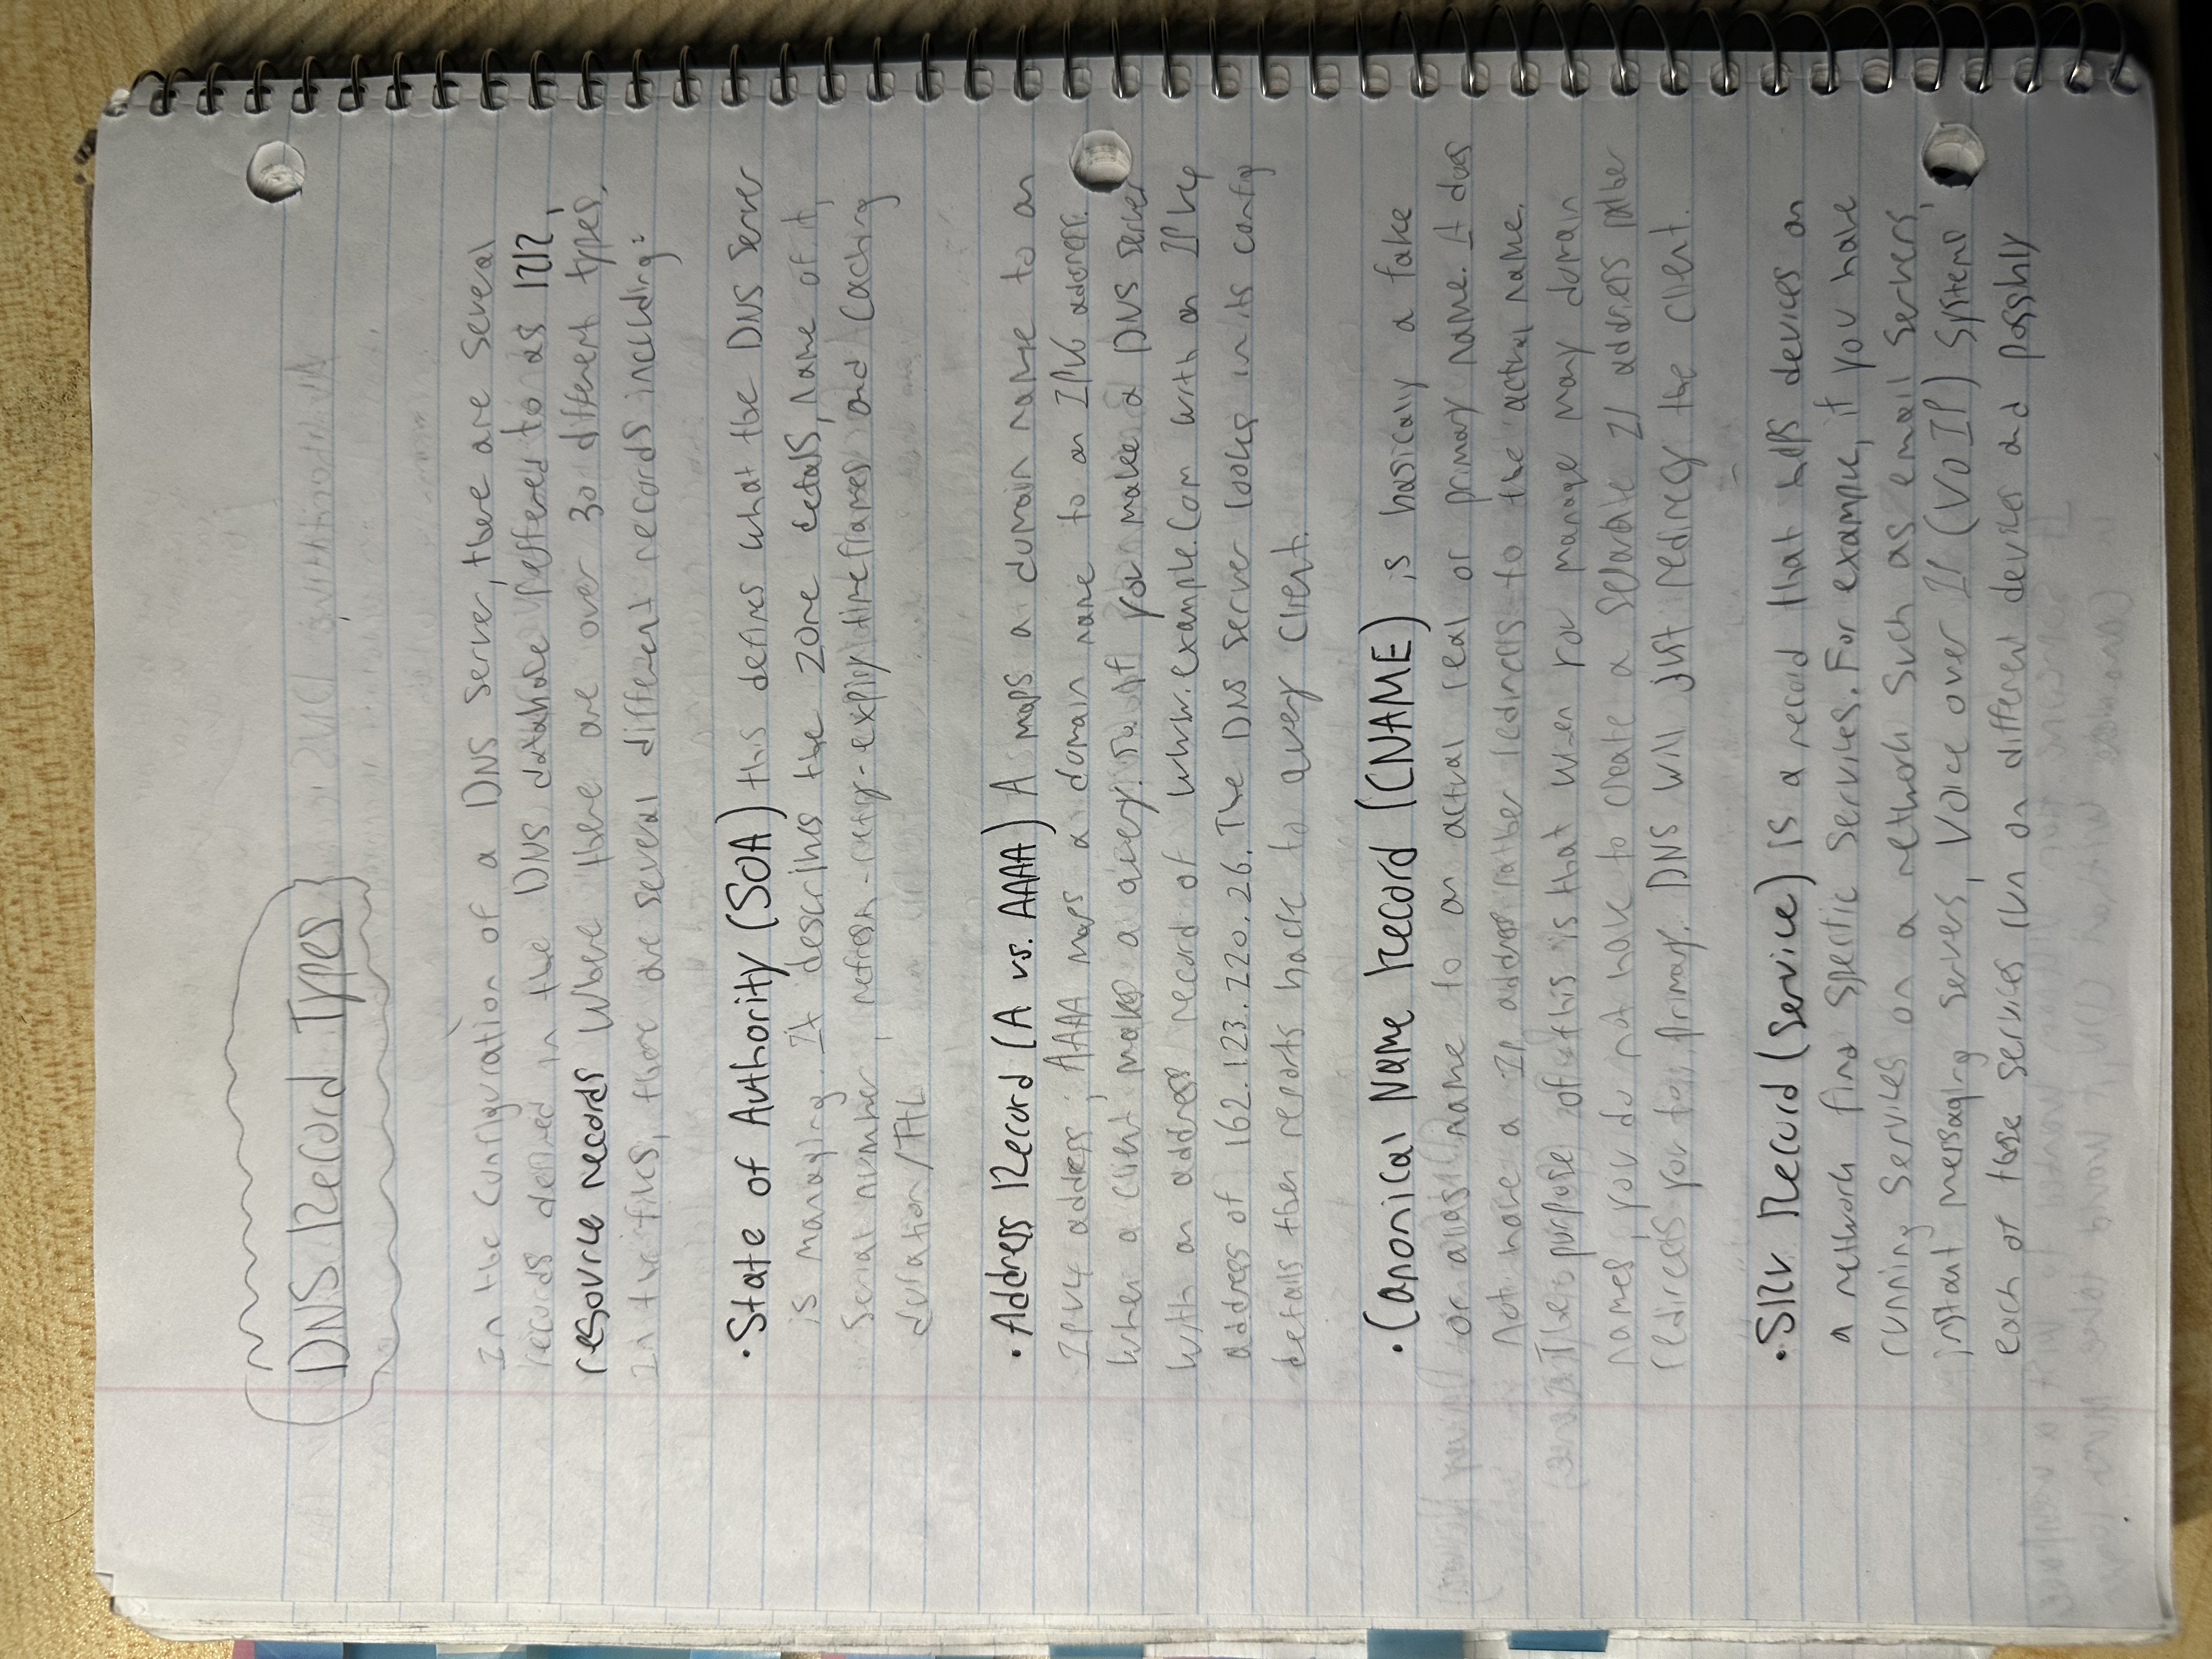 DNS Record Types
In the configuration of a DNS server, there are several
records defined in the DNS database reffered to as RR,
resource records where there are over 30 different types.
In the files, there are several different records including:
• State of Authority (SOA) this defines what the DNS server
is managing. It describes the zone details, name of it,
serial number, refresh-retry-expiry timeframes and caching
duration/TTL
• Address Record (A vs. AAAA) A maps a domain name to an
IPv4 address; AAAA maps a domain name to an IPv6 address.
When a client makes a query. So if you make a DNS server
with an address record of www.example.com with an IPv4
address of 162.123.220.26. The DNS server looks in its config
details then reports back to query client.
• Canonical Name Record (CNAME) is basically a fake
or alias name to an actual real or primary name. It does
not have a IP address rather redirects to the actual name.
The purpose of this is that when you manage many domain
names, you do not have to create a separate IP address rather
redirects you to primary. DNS will just redirect the client.
• SRV Record (Service) is a record that helps devices on
a network find specific services. For example, if you have
running services on a network such as email servers,
instant messaging servers, Voice over IP (VoIP) systems
each of these services run on different devices and possibly